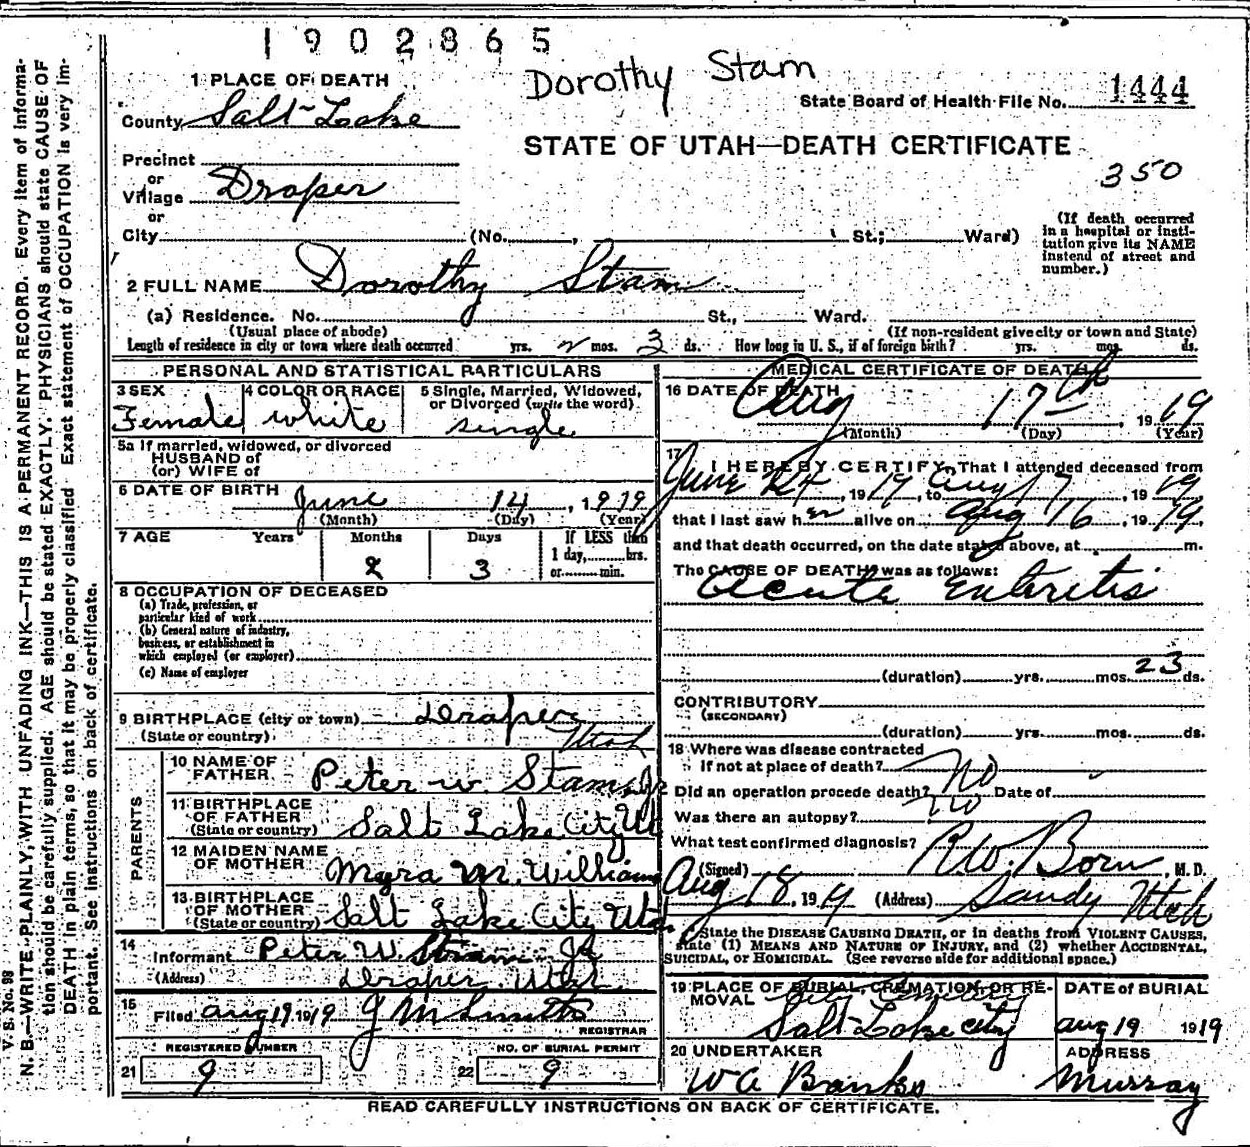 1902865
Dorothy Stam
1 PLACE OF DEATH
State Board of Health File No. 1444
County Salt Lake
STATE OF UTAH—DEATH CERTIFICATE
350
Precinct
or
Village Draper
or
City (No. , St.; Ward)
(If death occurred in a hospital or institution give its NAME instead of street and number.)
2 FULL NAME Dorothy Stam
(a) Residence. No. St., Ward.
(Usual place of abode) (If non-resident give city or town and State)
Length of residence in city or town where death occurred yrs. 2 mos. 3 ds. How long in U. S., if of foreign birth? yrs. mos. ds.
PERSONAL AND STATISTICAL PARTICULARS
3 SEX Female
4 COLOR OR RACE white
5 Single, Married, Widowed, or Divorced (write the word) single
5a If married, widowed, or divorced
HUSBAND of
(or) WIFE of
6 DATE OF BIRTH June 14, 1919
(Month) (Day) (Year)
7 AGE Years Months Days If LESS than
1 day, hrs.
or min.
2 3
8 OCCUPATION OF DECEASED
(a) Trade, profession, or
particular kind of work
(b) General nature of industry,
business, or establishment in
which employed (or employer)
(c) Name of employer
9 BIRTHPLACE (city or town) Draper
(State or country) Utah
PARENTS
10 NAME OF FATHER Peter W. Stam Jr
11 BIRTHPLACE OF FATHER (State or country) Salt Lake City Ut
12 MAIDEN NAME OF MOTHER Myra M. Williams
13 BIRTHPLACE OF MOTHER (State or country) Salt Lake City Utah
14 Informant Peter W. Stam Jr
(Address) Draper, Utah
15 Filed Aug 19 1919 J M Smith
REGISTRAR
REGISTERED NUMBER NO. OF BURIAL PERMIT
21 9 22 9
MEDICAL CERTIFICATE OF DEATH
16 DATE OF DEATH Aug 17th 1919
(Month) (Day) (Year)
17 I HEREBY CERTIFY, That I attended deceased from
June 24, 1919, to Aug 17, 1919
that I last saw her alive on Aug 16, 1919
and that death occurred, on the date stated above, at m.
The CAUSE OF DEATH was as follows:
Acute Enteritis
(duration) yrs. mos. 23 ds.
CONTRIBUTORY
(SECONDARY)
(duration) yrs. mos. ds.
18 Where was disease contracted
If not at place of death?
Did an operation precede death? No Date of
Was there an autopsy? No
What test confirmed diagnosis?
(Signed) R.W. Born, M. D.
Aug 18, 1919 (Address) Sandy Utah
State the DISEASE CAUSING DEATH, or in deaths from VIOLENT CAUSES,
state (1) MEANS AND NATURE OF INJURY, and (2) whether ACCIDENTAL,
SUICIDAL, or HOMICIDAL. (See reverse side for additional space.)
19 PLACE OF BURIAL, CREMATION OR REMOVAL City Cemetery
Salt Lake City
DATE of BURIAL
Aug 19 1919
20 UNDERTAKER ADDRESS
W A Banks Murray
READ CAREFULLY INSTRUCTIONS ON BACK OF CERTIFICATE.
V. S. No. 98
N. B.—WRITE PLAINLY, WITH UNFADING INK—THIS IS A PERMANENT RECORD. Every item of information should be carefully supplied. AGE should be stated EXACTLY. PHYSICIANS should state CAUSE OF DEATH in plain terms, so that it may be properly classified. Exact statement of OCCUPATION is very important. See instructions on back of certificate.